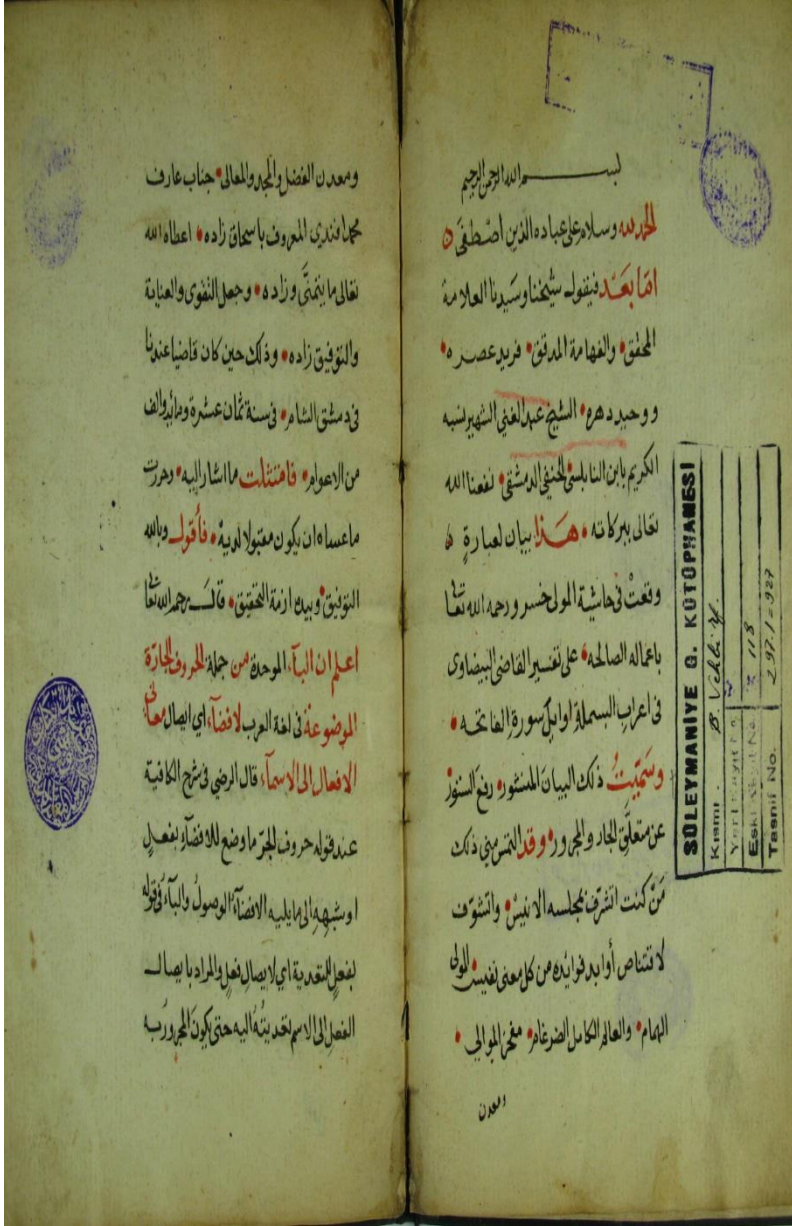 بسم الله الرحمن الرحيم
الحمد لله وسلام على عباده الذين اصطفى
اما بعد فيقول شيخنا وسيدنا العلامة
المحقق والفهامة المدقق فريد عصره
ووحيد دهره الشيخ عبد الغني الشهير نسبه
الكريم بابن النابلسي الحنفي الدمشقي نفعنا الله
تعالى ببركاته هذا بيان لعبارة
وقعت في حاشية المولى خسرو رحمه الله تعالى
باعماله الصالحه على تفسير القاضي البيضاوي
في اعراب البسملة اوايل سورة الفاتحه
وسميت ذلك البيان المنشور رفع الستور
عن متعلق الجار والمجرور وقد التمس مني ذلك
من كنت اتشرف بمجلسه الانيس واتشوف
لاقتناص أوابد فوايده من كل معنى نفيس المولى
الهمام والعالم الكامل الضرغام مفخر الموالي
ومعدن
ومعدن الفضل والمجد والمعالي جناب عارف
محمد افندي المعروف باسحاق زاده اعطاه الله
تعالى ما يتمنى وزاده وجعل التقوى والعناية
والتوفيق زاده وذلك حين كان قاضيا عندنا
في دمشق الشام في سنة ثمان عشرة ومائة والف
من الاعوام فامتثلت ما اشار اليه وحررت
ما عساه ان يكون مقبولا لديه فأقول وبالله
التوفيق وبيده ازمة التحقيق قال رحمه الله تعالى
اعلم ان البآء الموحدة من جملة الحروف الجارة
الموضوعة في لغة العرب لافضآء اي ايصال معاني
الافعال الى الاسمآء قال الرضي في شرح الكافية
عند قوله حروف الجر ما وضع للافضآء بفعل
او شبهه الى ما يليه الافضآء الوصول والبآء في قوله
بفعل للتعدية اي لايصال فعل والمراد بايصال
الفعل الى الاسم تعديته اليه حتى يكون المجرور به
SÜLEYMANİYE G. KÜTÜPHANESİ
Kısmı B. Vehbi Ef.
Yeni Kayıt No.
Eski Kayıt No. 113
Tasnif No. 297.1-927